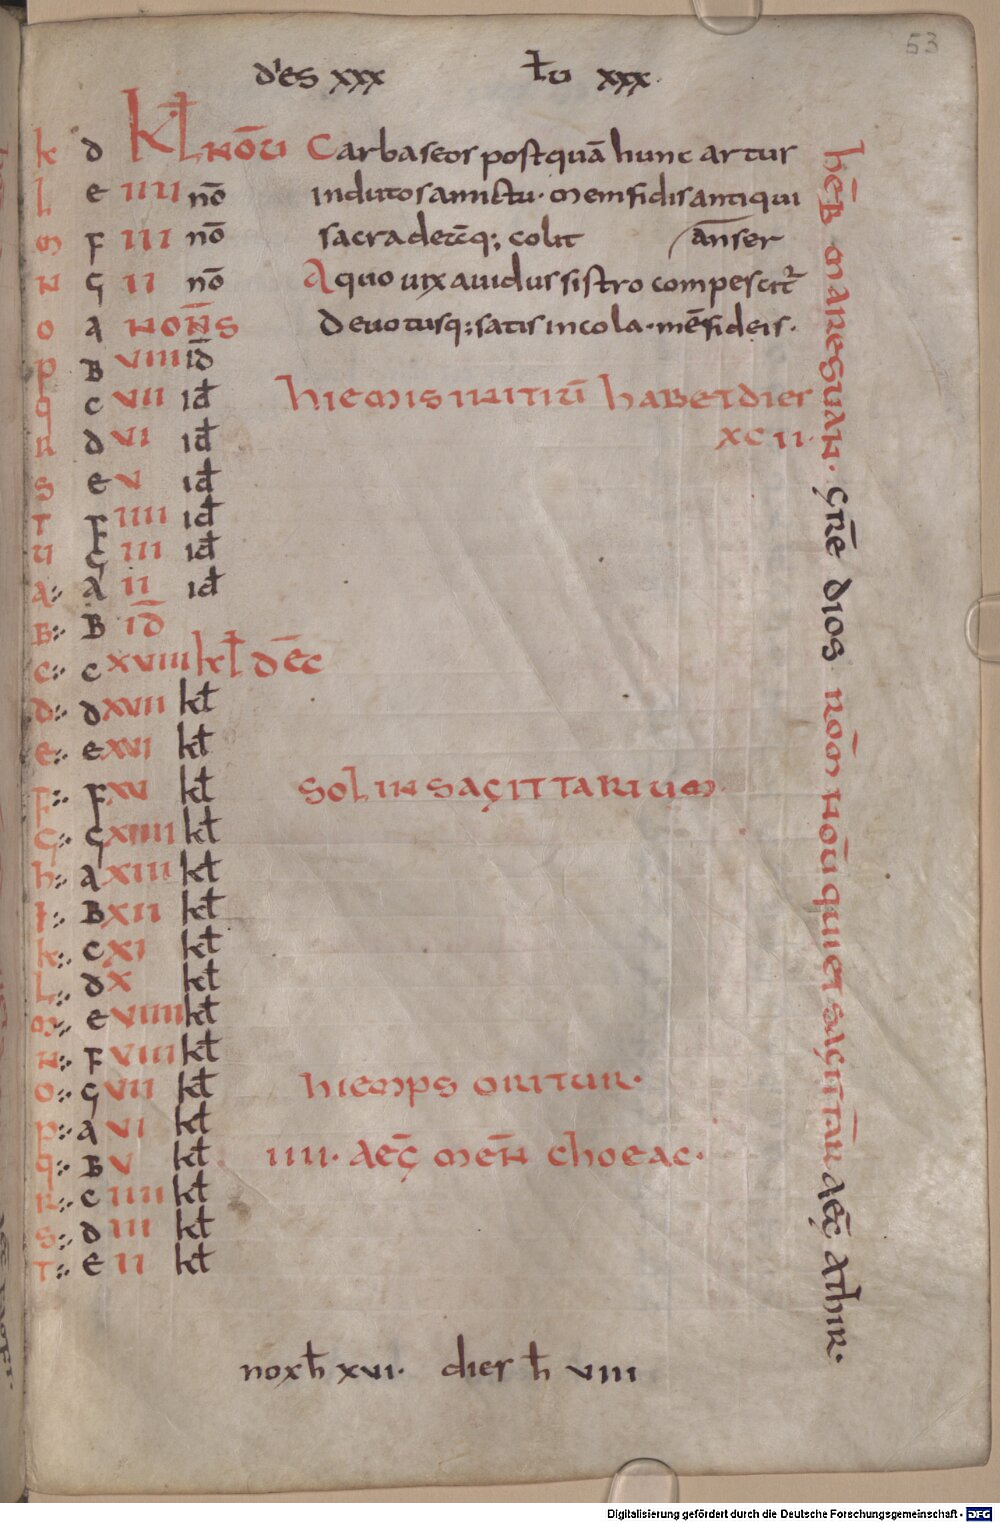 53
d'es xxx ƚu xxx.
k d KL NOV̄ Carbaseos postquā hunc artus
l e IIII nō indutos amictu· memfidis antiqui
m F III nō sacra deēq; colit anser
n G II nō A quo vix avidus sistro compescit᷑
o A NON̄S Devotusq; satis incola· mēfideis·
p B VIII id̄
q c VII iđ HIEMIS INITIŪ HABET DIES
r d VI iđ XCII·
s e V iđ
T F IIII iđ
u G III iđ
a:· A II iđ
B:· B ID̄
c:· c XVIII kƚ DĒC
d:· d XVII kƚ
e:· e XVI kƚ
F:· F XV kƚ SOL IN SAGITTARIUM
G:· G XIIII kƚ
h:· A XIII kƚ
I:· B XII kƚ
k:· c XI kƚ
L:· d X kƚ
m:· e VIIII kƚ
N:· F VIII kƚ
O:· G VII kƚ HIEMPS ORITUR·
p:· A VI kƚ
q:· B V kƚ IIII· AEḠ MEN̄ CHOEAC·
R:· c IIII kƚ
S:· d III kƚ
T:· e II kƚ
nox ħ xvi· dies ħ viii
HEB̄ MARESUAN· GRĒ DIOS ROM̄ NOV̄ QUI ET SAGITTAR̄ AEḠ ATHIR·
Digitalisierung gefördert durch die Deutsche Forschungsgemeinschaft - DFG